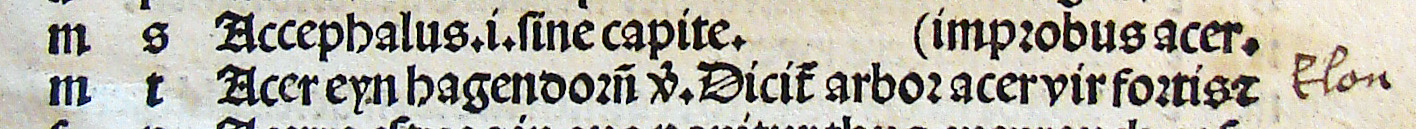 m s Accephalus.i.ſine capite. (improbus acer.
m t Acer eyn hagendorn̄ v̓. Dicit᷑ arboꝛ acer vir foꝛtis ⁊ klon